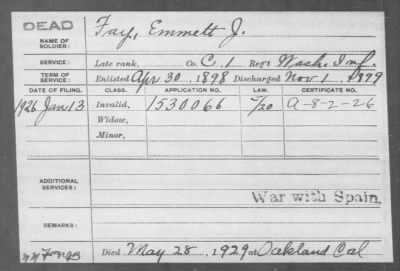 DEAD
NAME OF SOLDIER: Fay, Emmett J.
SERVICE: Late rank, Co. C. 1 Reg't Wash. Inf.
TERM OF SERVICE: Enlisted Apr 30 1898 Discharged Nov 1 1899
DATE OF FILING. CLASS. APPLICATION NO. LAW. CERTIFICATE NO.
1926 Jan 13 Invalid, 1530066 A-8-2-26
Widow,
Minor,
ADDITIONAL SERVICES:
War with Spain.
REMARKS:
Died May 28 1929 at Oakland Cal